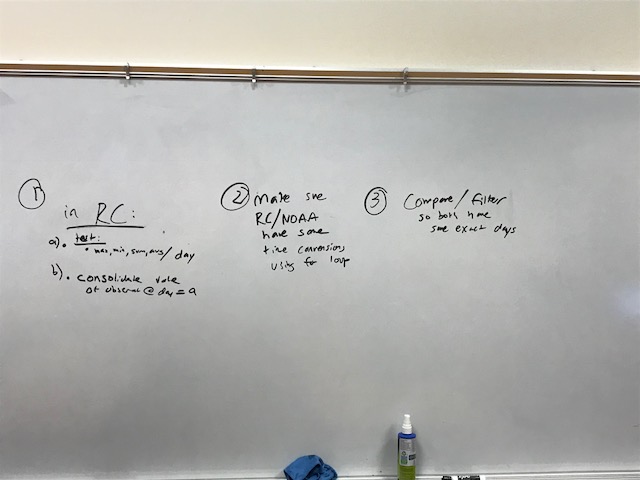 1
in RC:
a). test:
• max, min, sum, avg / day
b). consolidate value
of observat @ day = a
2 make sure
RC/NOAA
have same
time conversions
using for loop
3 Compare / Filter
so both have
same exact days